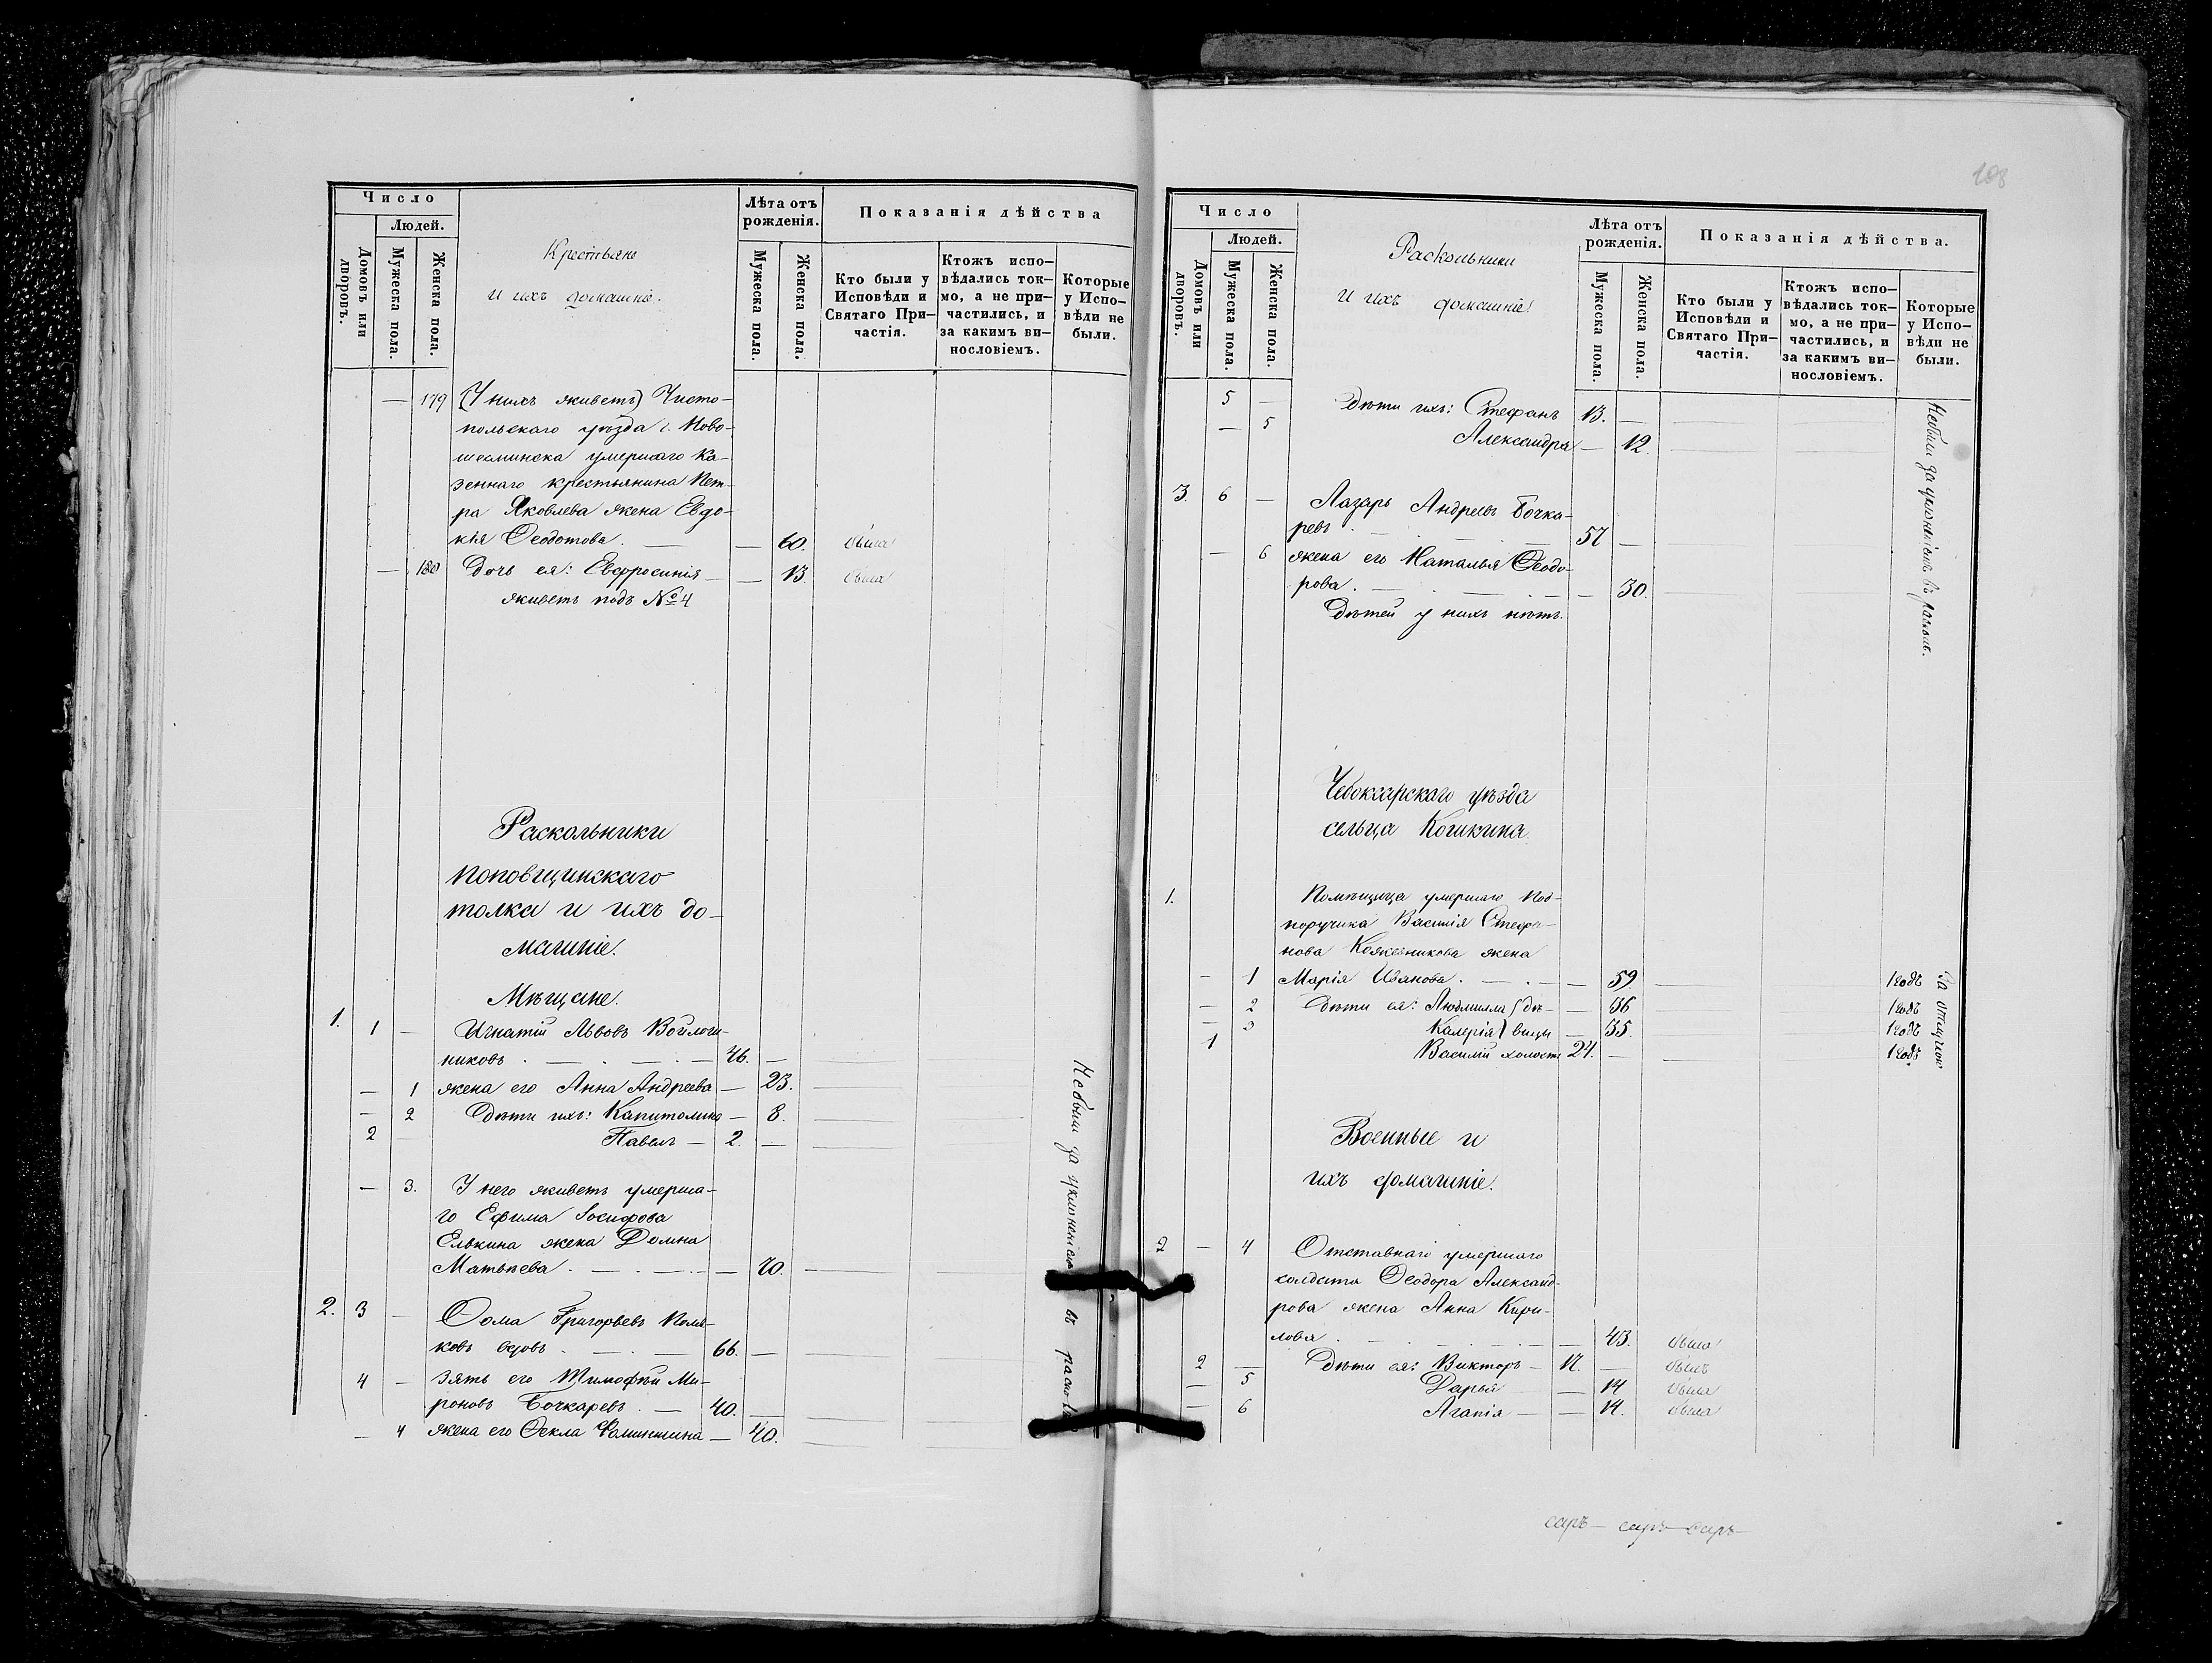 Число
Людей.
Домовъ или дворовъ.
Мужеска пола.
Женска пола.
Крестьяне
и ихъ домашніе.
Лѣта отъ рожденія.
Мужеска пола.
Женска пола.
Показанія дѣйства
Кто были у Исповѣди и Святаго Причастія.
Ктожъ исповѣдались токмо, а не причастились, и за какимъ винословіемъ.
Которые у Исповѣди не были.
— 179 (У нихъ живетъ) Чисто-
польскаго уѣзда с. Ново-
шешминска умершаго Ка-
зеннаго крестьянина Пет-
ра Яковлева жена Евдо-
кія Ѳеодотова. — — 60. была
— 180 Дочь ея: Евфросинія — — 13. была
живетъ подъ № 4
Раскольники
поповщинскаго
толка и ихъ до-
машніе.
Мѣщане.
1. 1 — Игнатій Львовъ Войлоч-
никовъ . — . — . — 46. —
— 1 жена его Анна Андреева — 23.
— 2 Дѣти ихъ: Капитолина — 8.
2 — Павелъ — 2. —
— 3. У него живетъ умерша-
го Ефима Іосифова
Елькина жена Домна
Матвѣева . — . — . — — 70.
2. 3 — Ѳома Григорьевъ Поля-
ковъ вдовъ . — . — 66. —
4 — Зять его Тимофѣй Ми-
роновъ Бочкаревъ . — 40. —
— 4 жена его Ѳекла Фоминишна — 40.
Небыли за уклоненіемъ въ расколъ
103
Число
Людей.
Домовъ или дворовъ.
Мужеска пола.
Женска пола.
Раскольники
и ихъ домашніе.
Лѣта отъ рожденія.
Мужеска пола.
Женска пола.
Показанія дѣйства.
Кто были у Исповѣди и Святаго Причастія.
Ктожъ исповѣдались токмо, а не причастились, и за какимъ винословіемъ.
Которые у Исповѣди не были.
5 — Дѣти ихъ: Стефанъ 13. —
— 5 Александра — 12.
3. 6 — Лазарь Андреевъ Бочка-
ревъ . — . — 57 —
— 6 жена его Наталья Ѳеодо-
рова . — . — . — — 30.
Дѣтей у нихъ нѣтъ.
Небыли за уклоненіемъ въ расколъ.
Чебоксарскаго уѣзда
сельца Кошкина.
1. Помѣщица умершаго Под-
поручика Василія Стефа-
нова Кожевникова жена
— 1 Марія Иванова . — . — — 59. 1 годъ
— 2 Дѣти ея: Людмилла } дѣ- — 36 1 годъ
— 3 Калерія } вицы — 35. 1 годъ
1 Василій холостъ 24. — 1 годъ
За отлучкою
Военные и
ихъ домашніе.
2 — 4 Отставнаго умершаго
солдата Ѳеодора Александ-
рова жена Анна Кири-
лова . — . — . — — 43. была
2 — Дѣти ея: Викторъ — 17. — былъ
— 5 Дарья — 14 была
— 6 Агапія — — 14. была